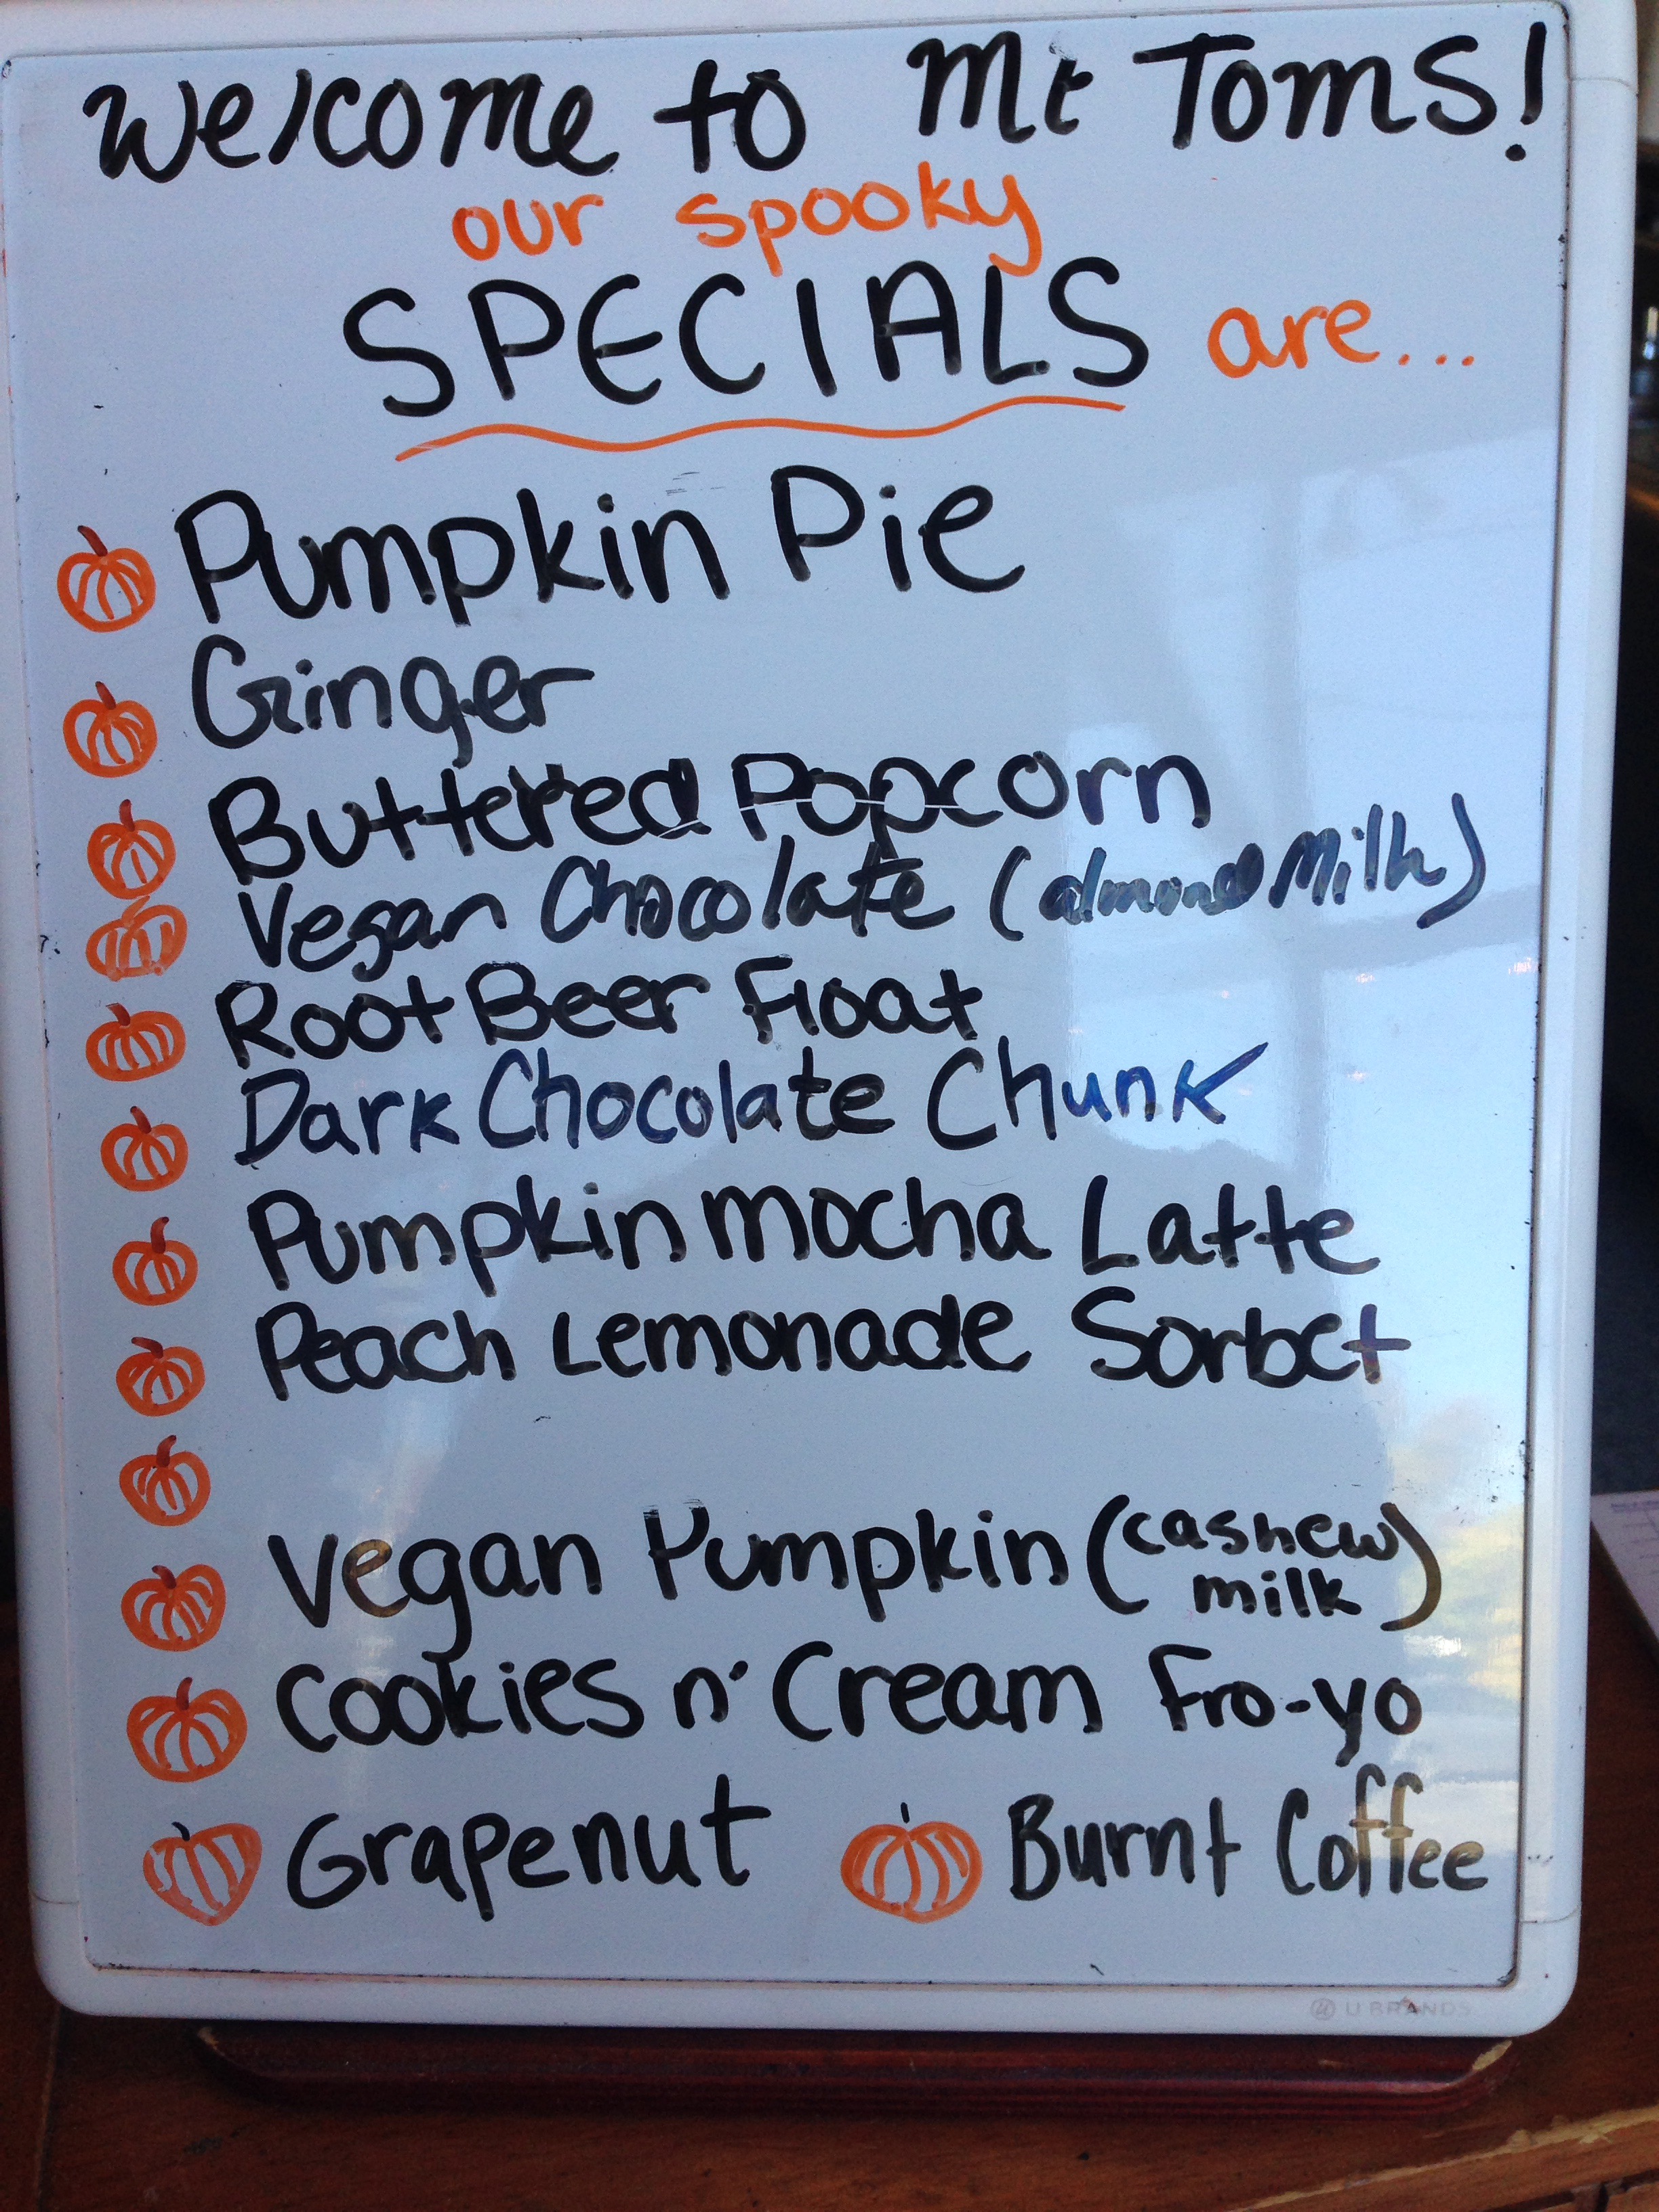 Welcome to Mt Toms!
our spooky
SPECIALS are...
Pumpkin Pie
Ginger
Buttered Popcorn
Vegan Chocolate (almond Milk)
Root Beer Float
Dark Chocolate Chunk
Pumpkin mocha Latte
Peach Lemonade Sorbet
Vegan Pumpkin (cashew
milk)
Cookies n' Cream Fro-yo
Grapenut Burnt Coffee
U BRANDS